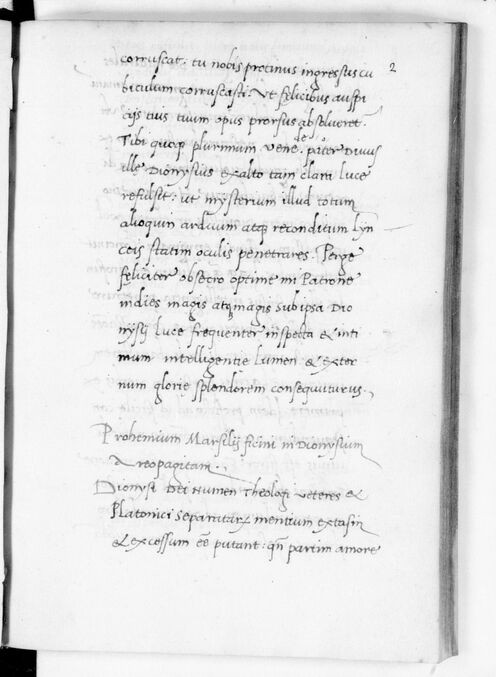 2
corruscat. tu nobis protinus ingressus cu
biculum corruscasti. Ut felicibus auspi
cijs eius tuum opus prorsus absolueret.
Tibi quoq plurimum venede. pater Divus
ille Dionysius ex alto tam clam luce
refulsit: ut mysterium illud totum
alioquin arduum atq reconditum Lyn
ceis statim oculis penetrares. Perge
feliciter obsecro optime mi Patrone
indies magis atq magis sub ipsa Dio
nysij luce frequenter inspecta & inti
mum intelligentie lumen & exter
num glorie splendorem consequuturus.
Prohemium Marsilij ficini in Dionysium
Areopagitam.
Dionysi Dei Numen Theologi veteres &
Platonici separatarum mentium extasin
& excessum eē putant: qn̄ partim amore